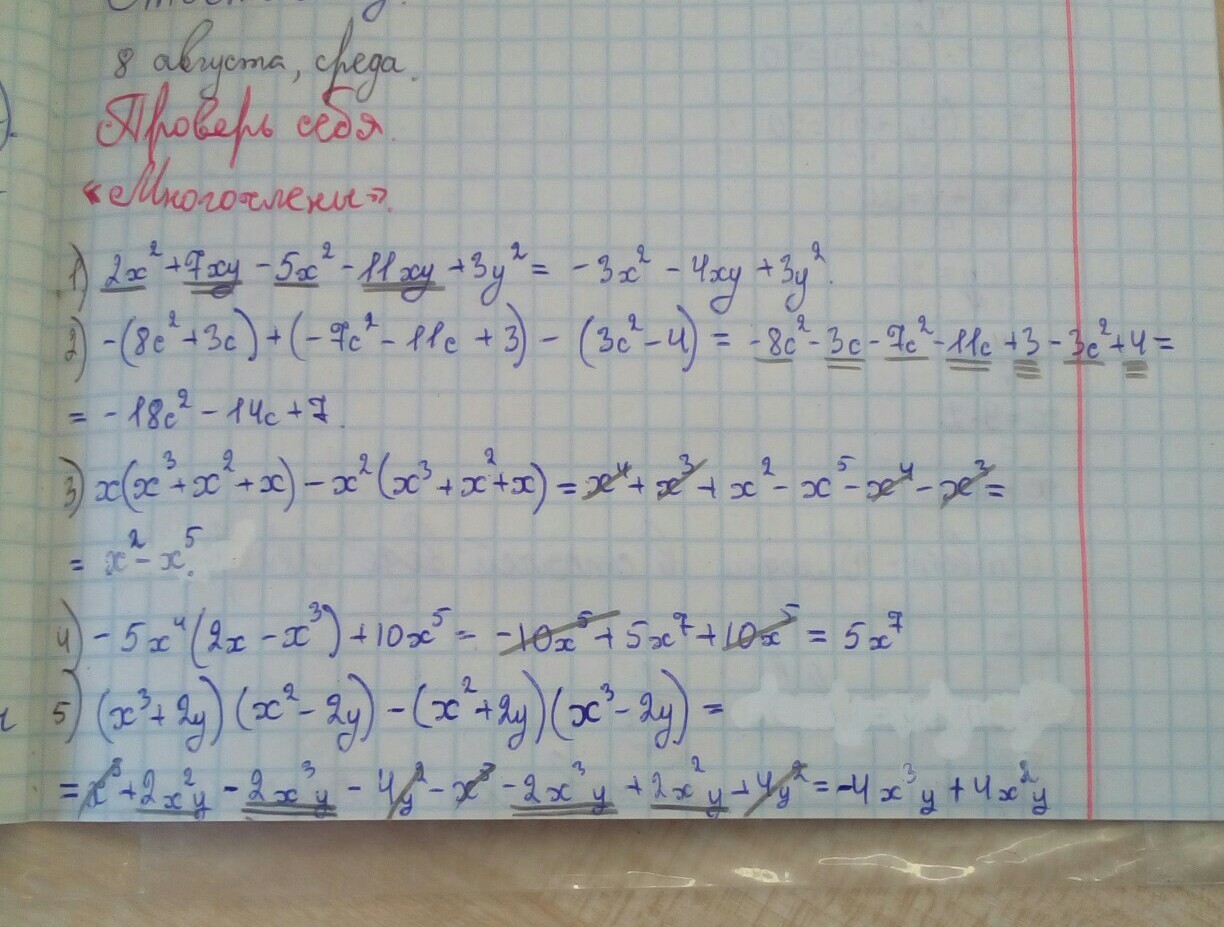 8 августа, среда.
Проверь себя.
"Многочлены".
1) 2x² + 7xy - 5x² - 11xy + 3y² = -3x² - 4xy + 3y².
2) -(8c² + 3c) + (-7c² - 11c + 3) - (3c² - 4) = -8c² - 3c - 7c² - 11c + 3 - 3c² + 4 =
= -18c² - 14c + 7.
3) x(x³ + x² + x) - x²(x³ + x² + x) = x⁴ + x³ + x² - x⁵ - x⁴ - x³ =
= x² - x⁵.
4) -5x⁴(2x - x³) + 10x⁵ = -10x⁵ + 5x⁷ + 10x⁵ = 5x⁷
5) (x³ + 2y)(x² - 2y) - (x² + 2y)(x³ - 2y) =
= x⁵ + 2x²y - 2x³y - 4y² - x⁵ - 2x³y + 2x²y + 4y² = -4x³y + 4x²y